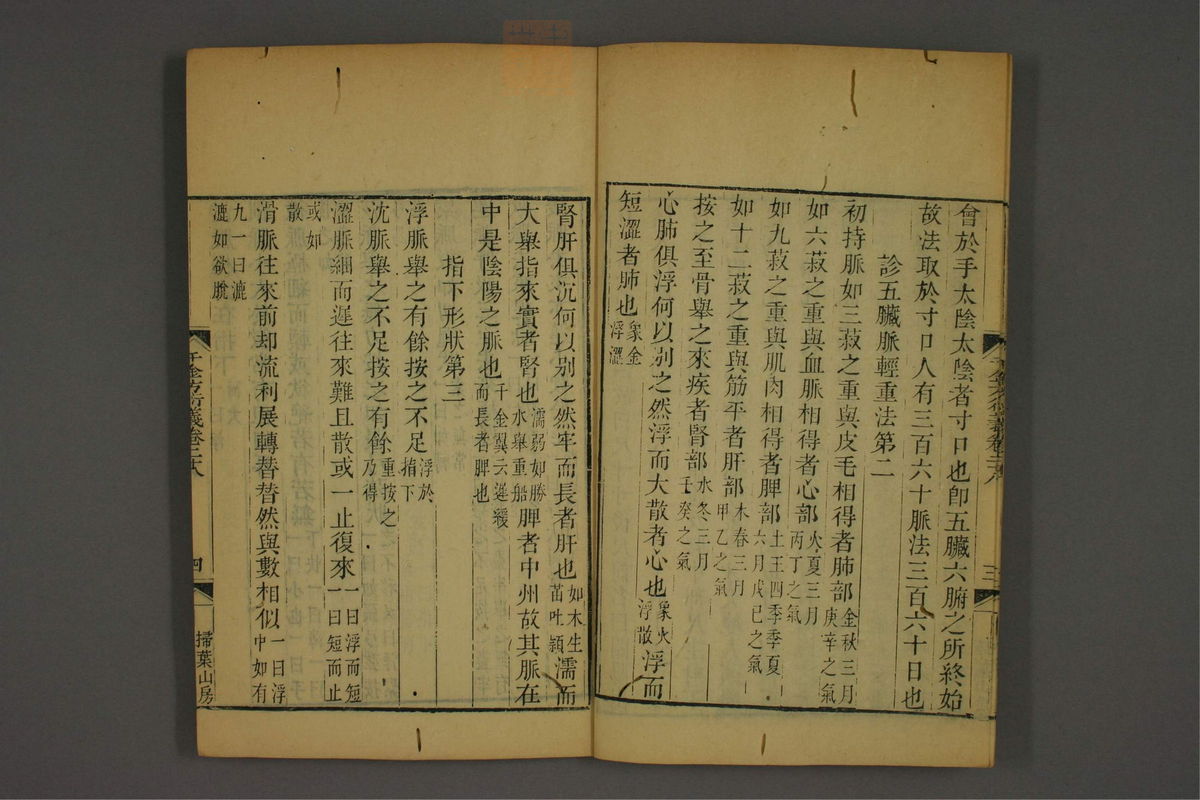 會於手太陰太陰者寸口也卽五臟六腑之所終始
故法取於寸口人有三百六十脈法三百六十日也
診五臟脈輕重法第二
初持脈如三菽之重與皮毛相得者肺部金秋三月庚辛之氣
如六菽之重與血脈相得者心部火夏三月丙丁之氣
如九菽之重與肌肉相得者脾部土王四季季夏六月戊巳之氣
如十二菽之重與筋平者肝部木春三月甲乙之氣
按之至骨舉之來疾者腎部水冬三月壬癸之氣
心肺俱浮何以别之然浮而大散者心也象火浮散浮而
短澀者肺也象金浮澀
三
腎肝俱沉何以别之然牢而長者肝也如木生苗吐穎濡而
大舉指來實者腎也濡弱如勝水舉重船脾者中州故其脈在
中是陰陽之脈也千金翼云遲緩而長者脾也
指下形狀第三
浮脈舉之有餘按之不足浮於指下
沈脈舉之不足按之有餘重按之乃得
澀脈細而遲往來難且散或一止復來一曰浮而短一曰短而止
或如散
滑脈往來前却流利展轉替替然與數相似一曰浮中如有
九一曰漉漉如欲脫
千金方衍義卷二十八
四
掃葉山房